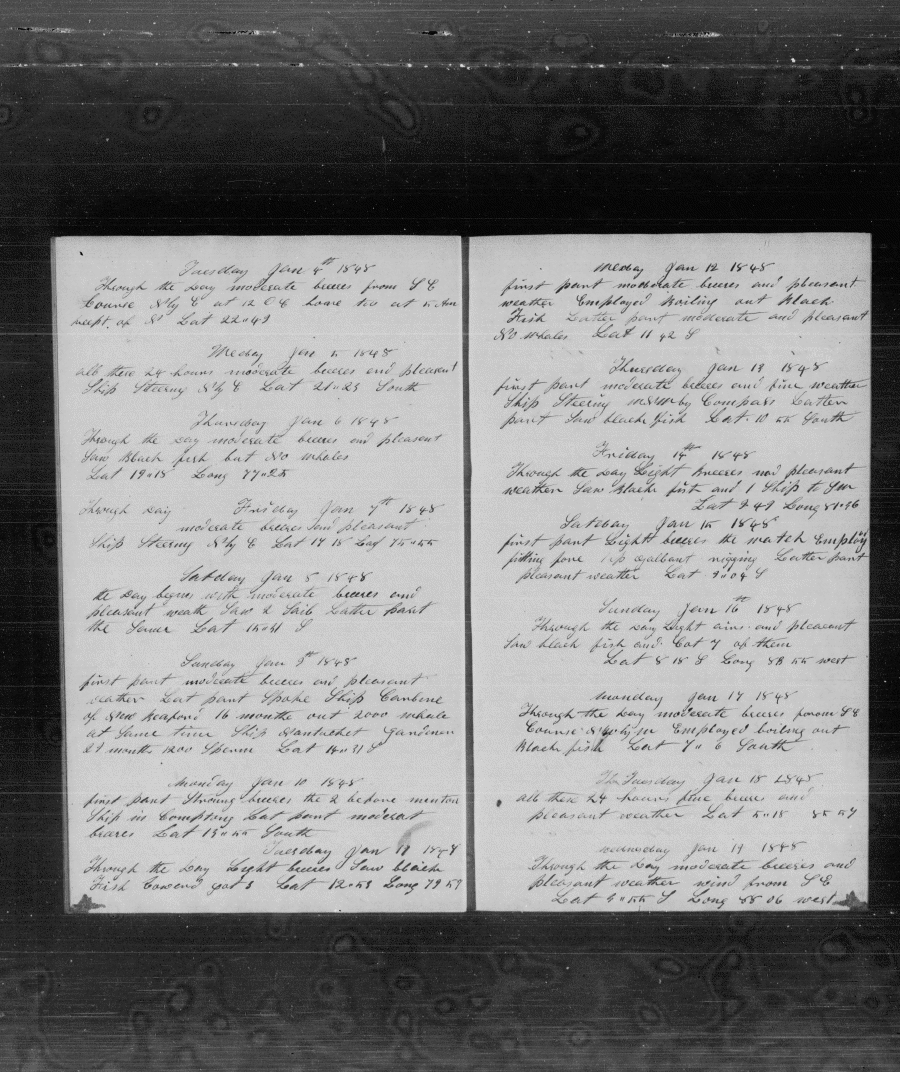 Tuesday Jan 4th 1848
Through the Day moderate breeze from S E
Course N by E at 12 O C hove too at 5 Am
kept of N Lat 22"49
Wedday Jan 5 1848
all these 24 hours moderate breezes and pleasant
Ship Steering N by E Lat 21"23 South
Thursday Jan 6 1848
Through the Day moderate breezes and pleasant
Saw Black fish but No whales
Lat 19"18 Long 77"25
Through Day Friday Jan 7th 1848
moderate breezes and pleasant
Ship Steering N by E Lat 17 18 Long 75"55
Satday Jan 8 1848
the Day begins with moderate breezes and
pleasant weath Saw 2 Sails Latter part
the Same Lat 15"51 S
Sunday Jan 9th 1848
first part moderate breezes and pleasant
weather Lat part Spoke Ship
of New 16 months out 2000 whale
at Same time Ship Nantucket Gardner
months 1200 Sperm Lat 14"31 S
Monday Jan 10 1848
first part Strong breezes the 2 before mention
Ship in Company Lat part moderat
breezes Lat 13"55 South
Tuesday Jan 11 1848
Through the Day Light breezes Saw black
Fish Lowerd got 3 Lat 12"53 Long 79 57
Wedday Jan 12 1848
first part moderate breezes and pleasant
weather Employed Boiling out Black
Fish Latter part moderate and pleasant
No whales Lat 11 42 S
Thursday Jan 13 1848
first part moderate breezes and fine weather
Ship Steering by Compass Latter
part Saw black fish Lat 10 55 South
Friday 14th 1848
Through the Day Light Breezes and pleasant
weather Saw Black fish and 1 Ship to
Lat 9 49 Long 81"36
Satday Jan 15 1848
first part Light breezes the watch Employ
fitting fore galant rigging Latter part
pleasant weather Lat 9"04 S
Sunday Jan 16th 1848
Through the Day Light airs and pleasant
Saw black fish and Got 7 of them
Lat 8 18 S Long 83 55 west
Monday Jan 17 1848
Through the Day moderate breezes from S E
Course Employed boiling out
Black fish Lat 7" 6 South
Tuesday Jan 18 1848
all these 24 hours fine breeze and
pleasant weather Lat 5"18 85 57
wednesday Jan 19 1848
Through the Day moderate breezes and
pleasant weather wind from S E
Lat 4"55 S Long 88 06 west